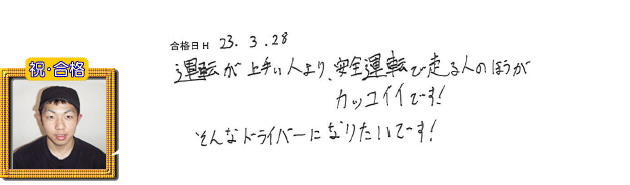 祝・合格
合格日 H 23. 3. 28
運転が上手い人より、安全運転で走る人のほうが
カッコイイです!
そんなドライバーになりたいです!